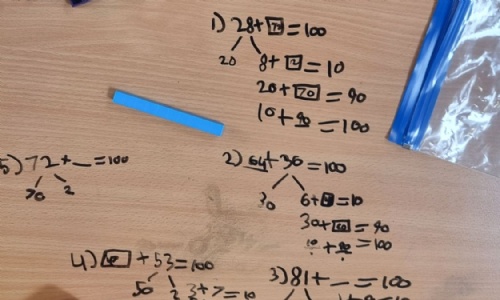 1) 28+72=100
20 8+2=10
20+70=90
10+90=100
2) 64+36=100
30 6+4=10
30+60=90
10+90=100
3) 81+_=100
4) +53=100
50 3 3+7=10
5) 72+_=100
70 2